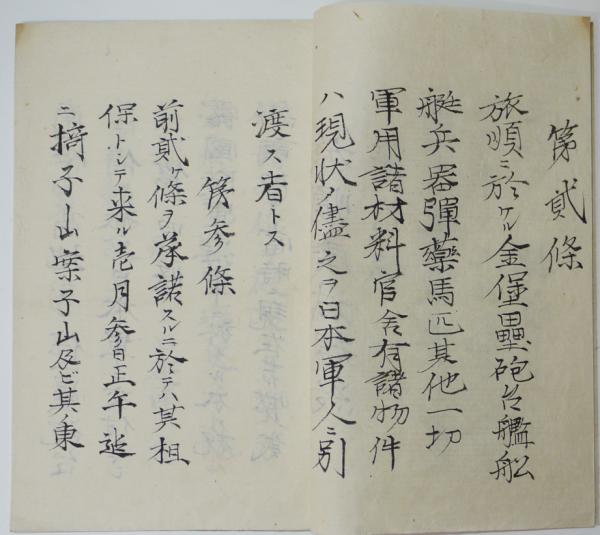 第貳條
旅順ニ於ケル全堡壘砲台艦舩
艇兵器彈藥馬匹其他一切
軍用諸材料官舍有諸物件
ハ現状ノ儘之ヲ日本軍人ニ別
渡ス者トス
第参條
前貳ヶ條ヲ承諾スルニ於テハ其担
保トシテ来ル壱月参日正午迠
ニ掎子山案子山及ビ其ノ東